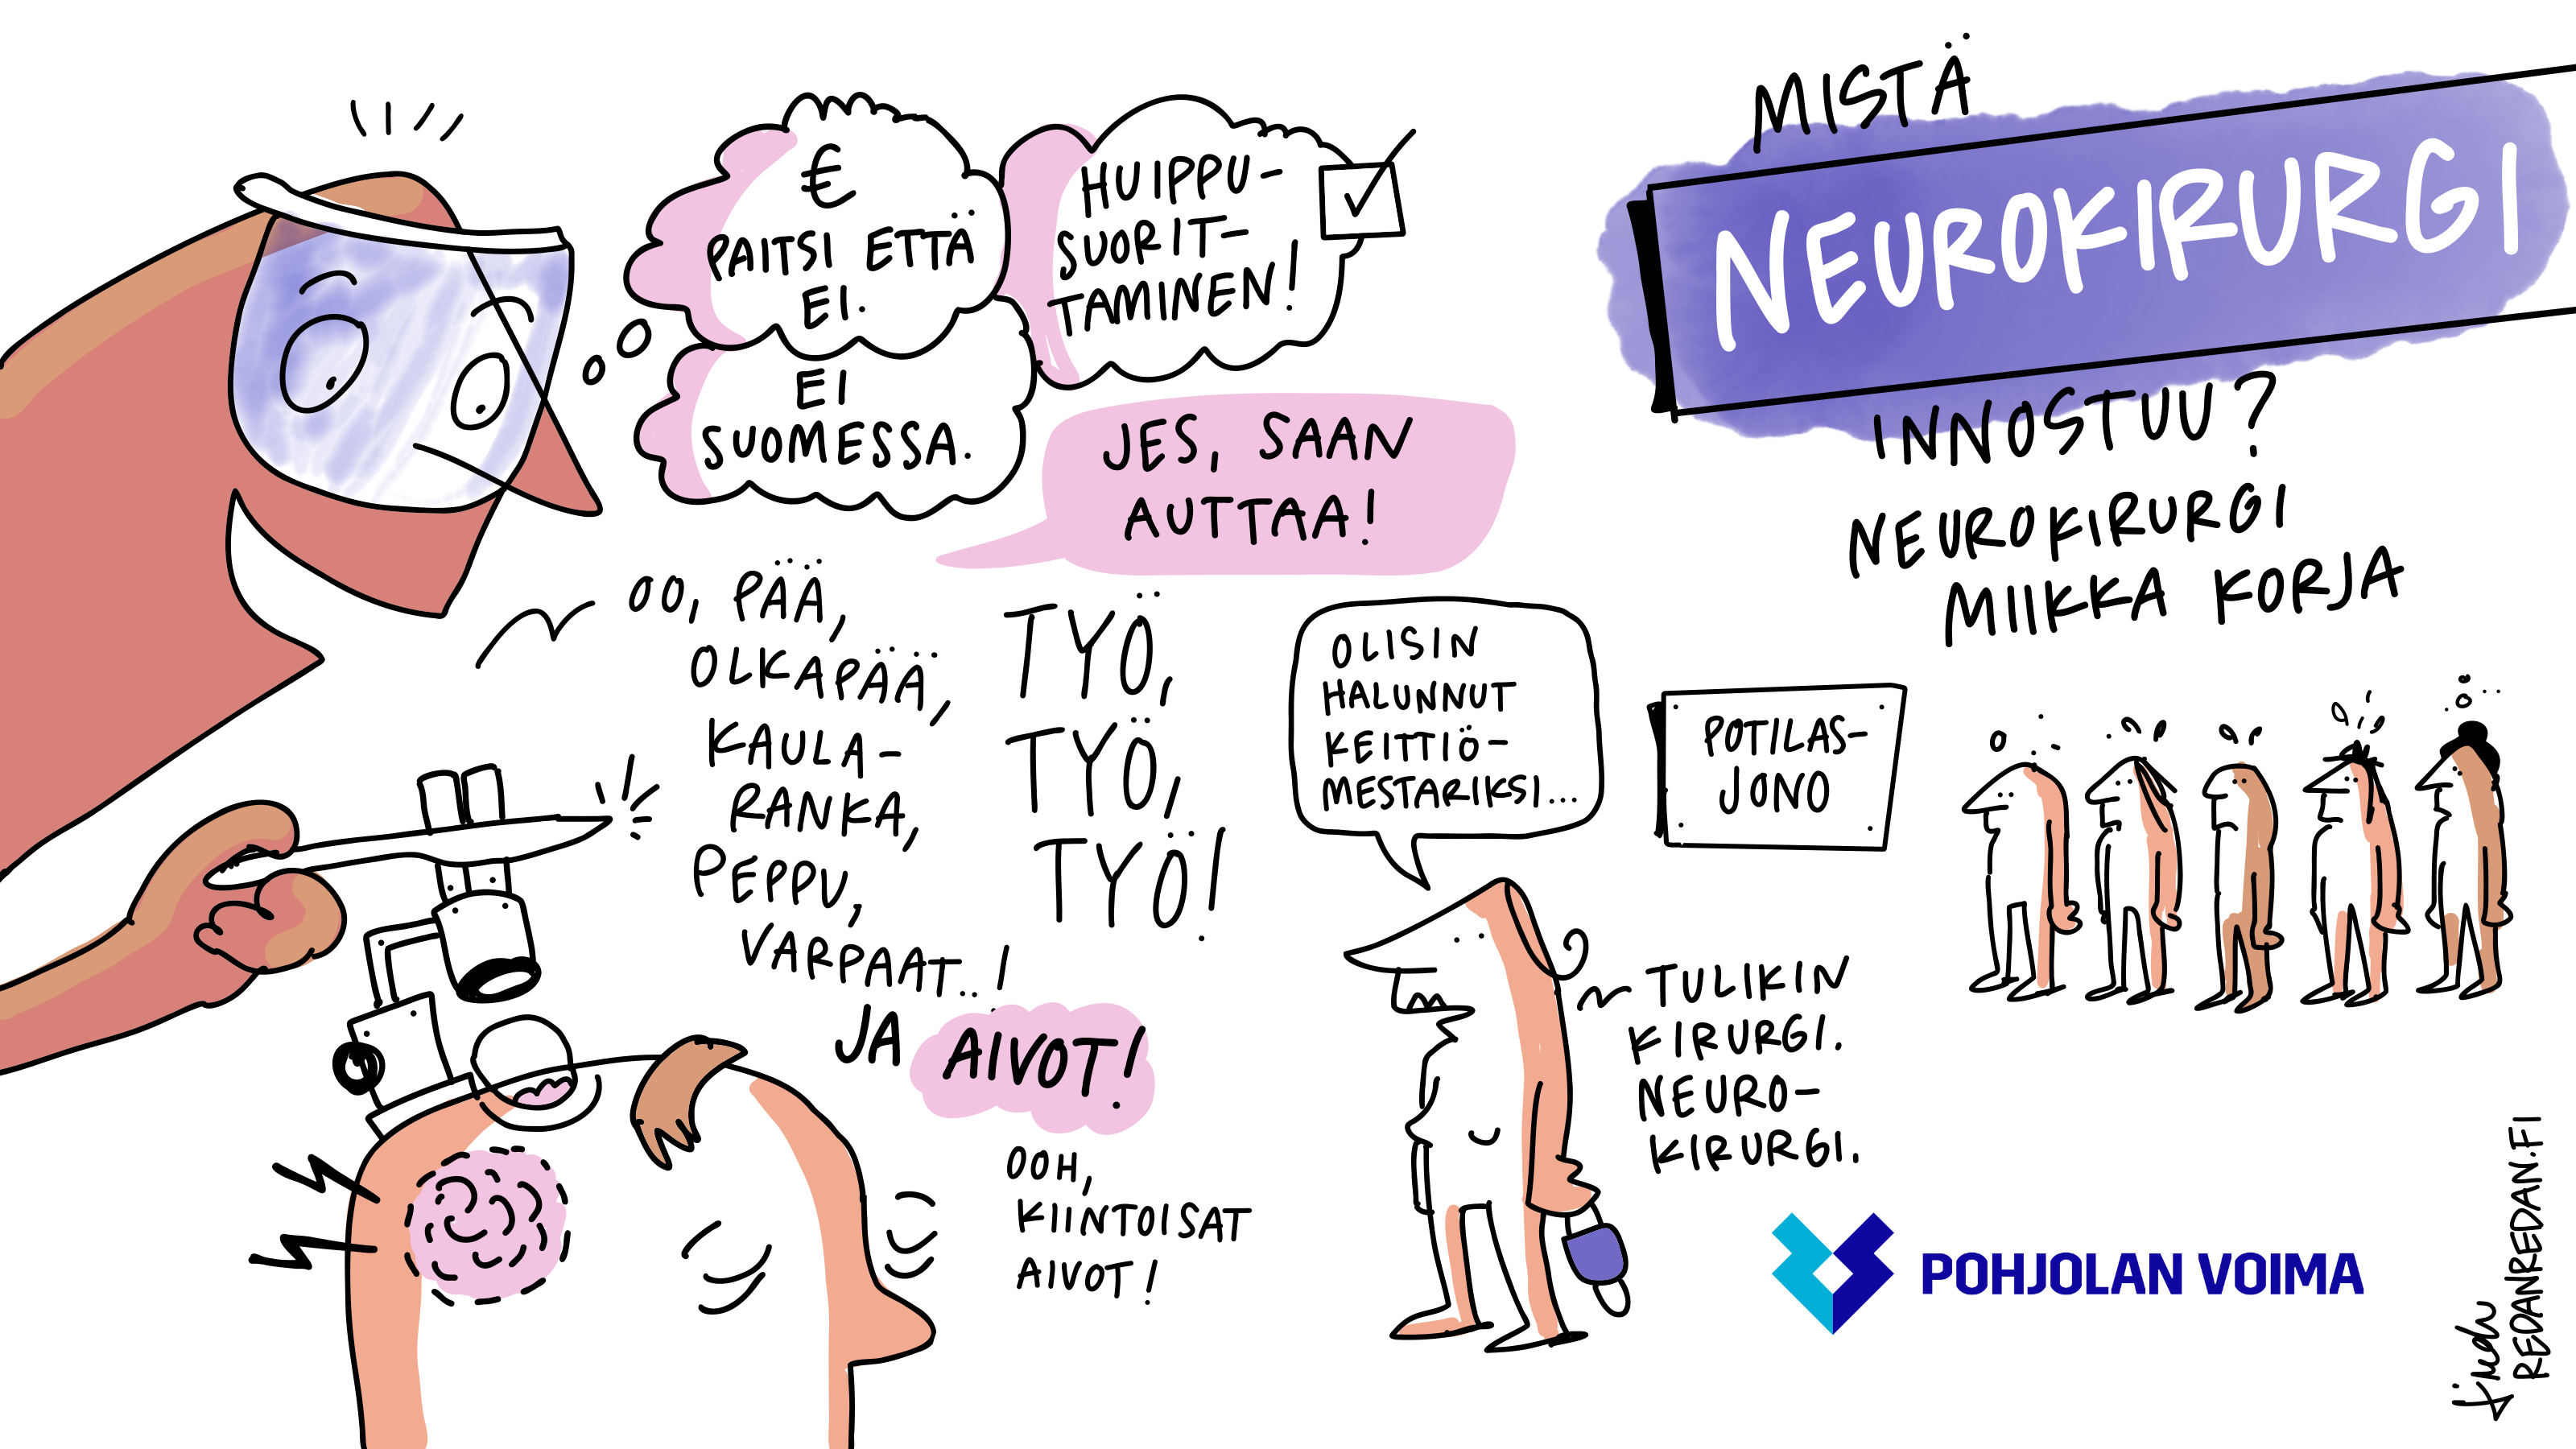 MISTÄ
NEUROKIRURGI
INNOSTUU?
NEUROKIRURGI
MIIKKA KORJA
€
PAITSI ETTÄ
EI.
EI
SUOMESSA.
HUIPPU-
SUORIT-
TAMINEN!
JES, SAAN
AUTTAA!
OO, PÄÄ,
OLKAPÄÄ,
KAULA-
RANKA,
PEPPU,
VARPAAT..!
JA AIVOT!
OOH,
KIINTOISAT
AIVOT!
TYÖ,
TYÖ,
TYÖ!
OLISIN
HALUNNUT
KEITTIÖ-
MESTARIKSI...
TULIKIN
KIRURGI.
NEURO-
KIRURGI.
POTILAS-
JONO
POHJOLAN VOIMA
REDANREDAN.FI